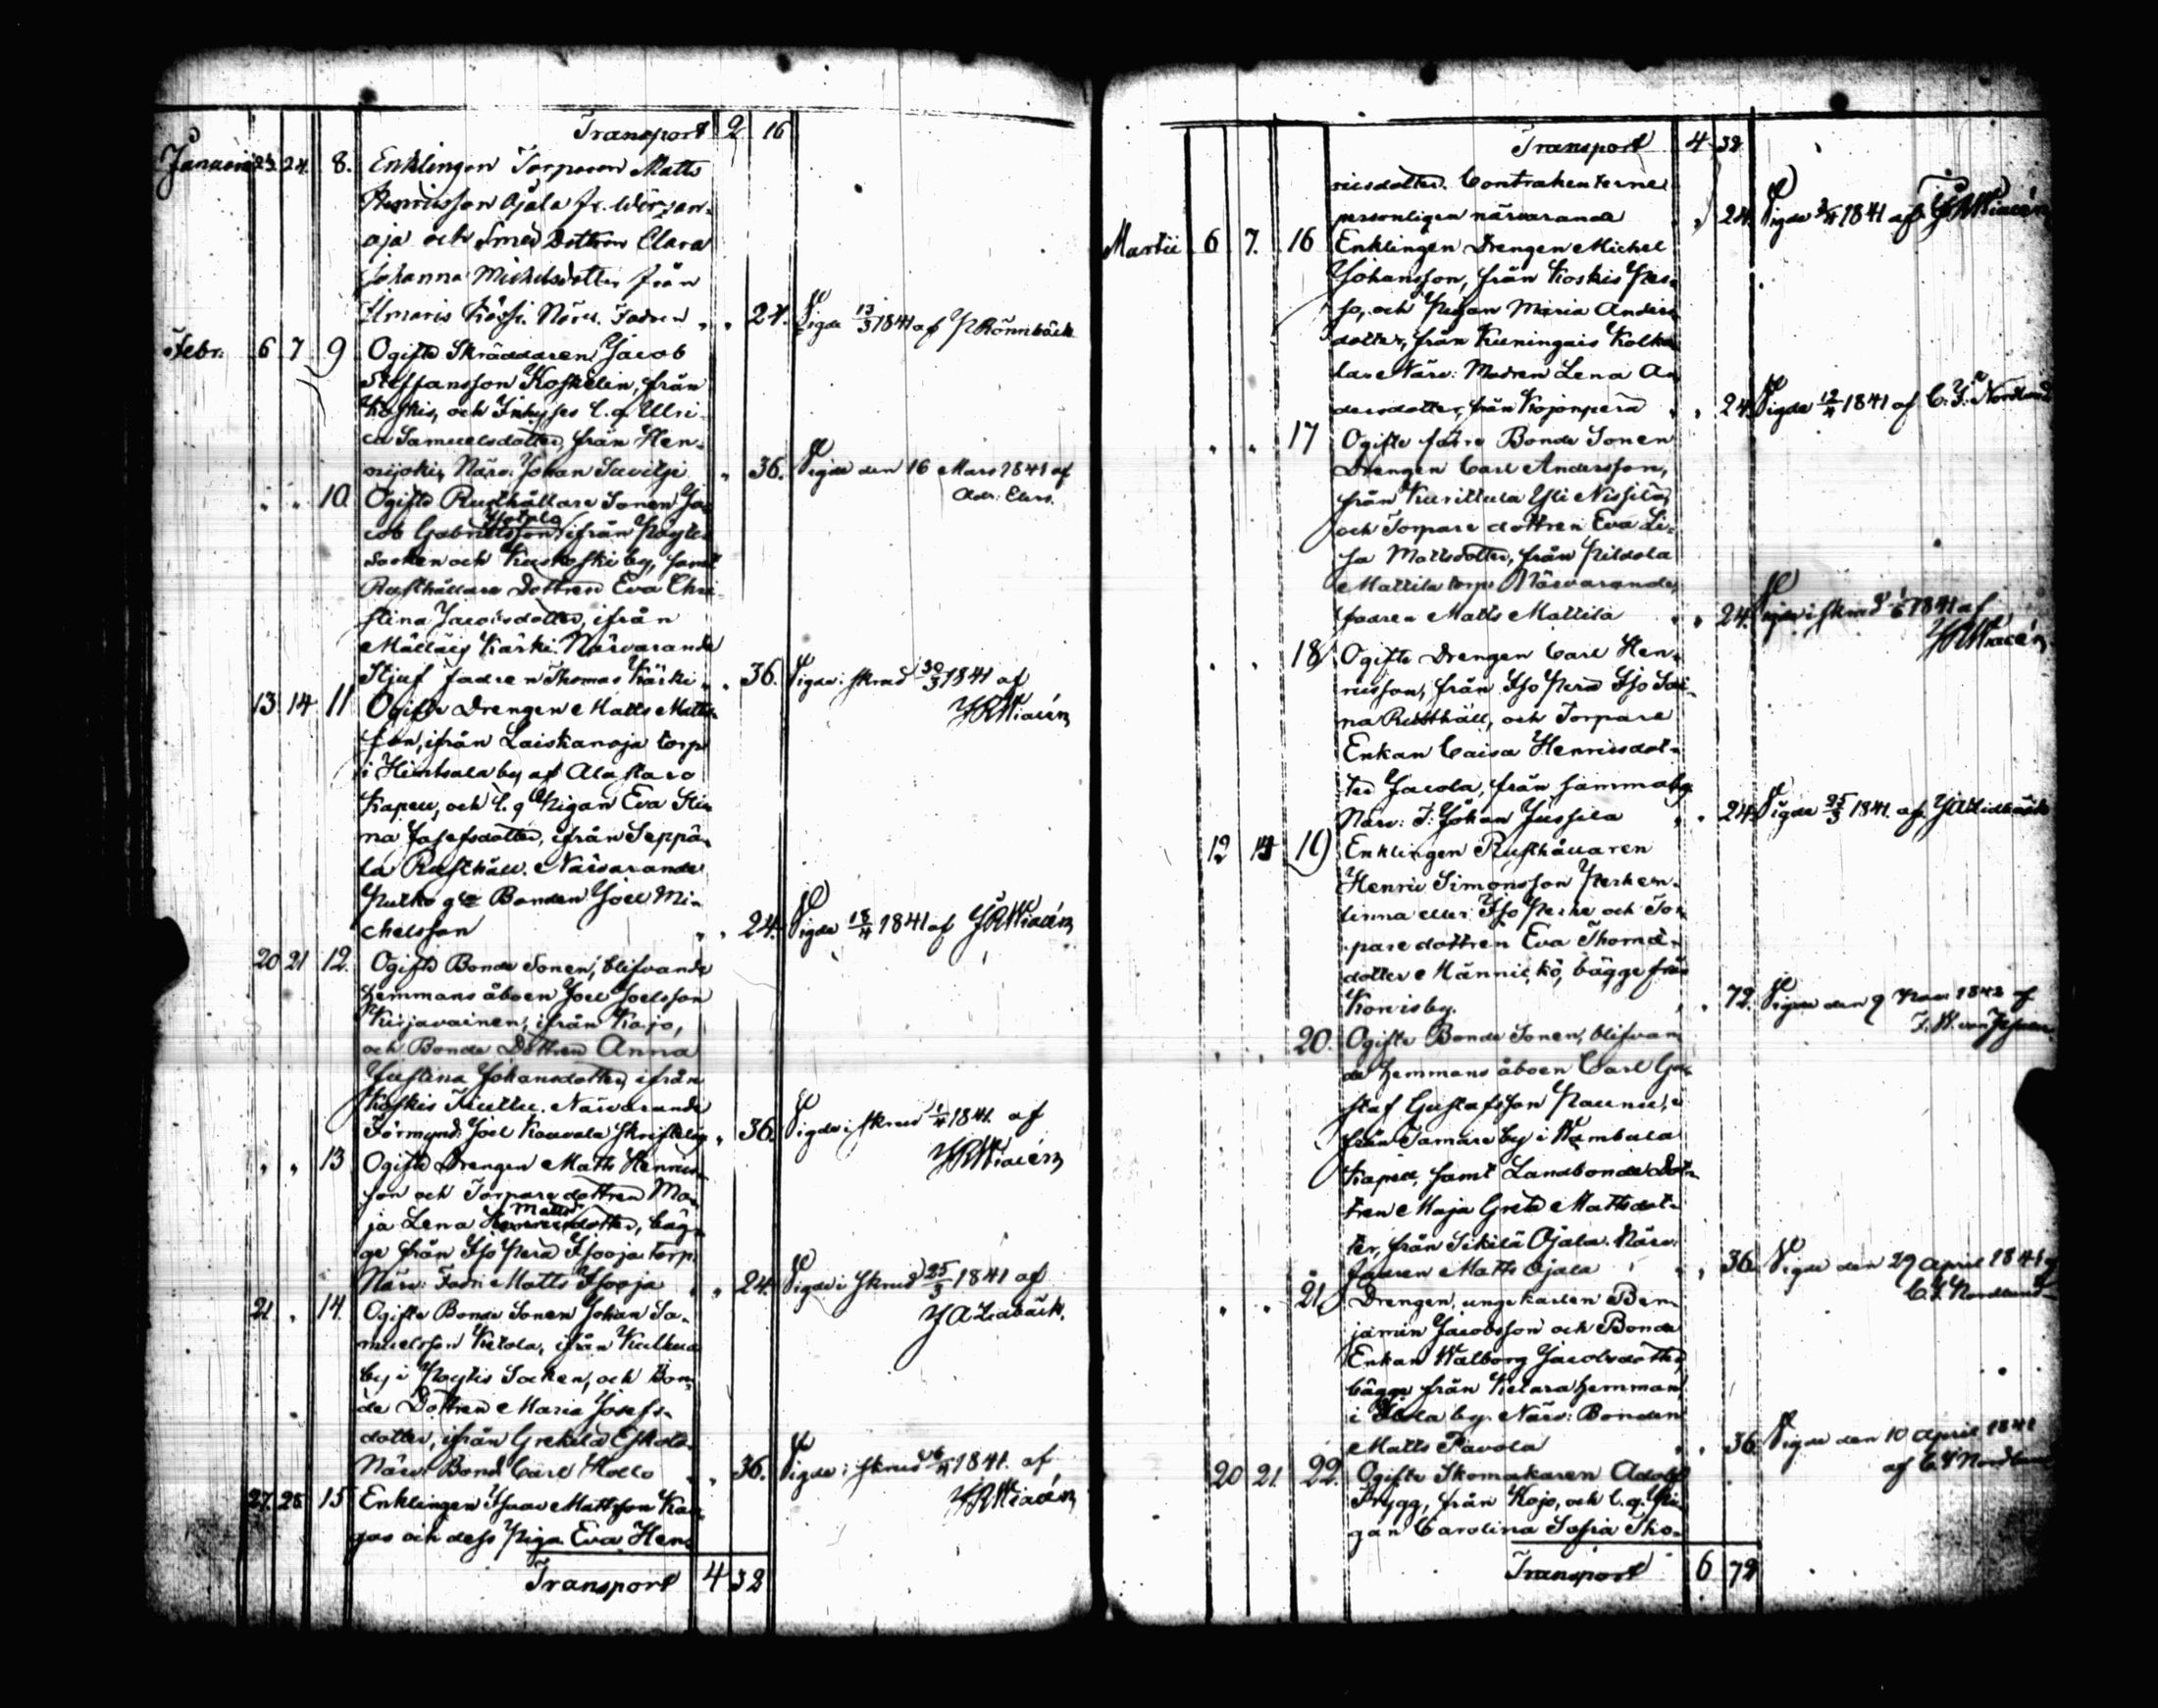 Transport 2 16
Januarii 23. 24. 8. Enklingen Torparen Matts
Henricsson Ojala fr. Wirzan-
oja och Smed Dottren Clara
Johanna Michelsdotter från
Ilmaris Kössi. Närv. Fadren " " 24. Vigde 13/3 1841 af P Rönnbäck
Febr. 6 7 9 Ogifte Skräddaren Jacob
Steffansson Koskelin, från
Koskis, och Inhyses l. q. Ulri-
ca Samuelsdotter, från Hen-
nijoki, Närv. Johan " 36. Vigde den 16 Mars 1841 af
" " 10. Ogifte Rusthållare Sonen Ja-
cob Gabrielsson ifrån Pöytis
Socken och by, samt
Rusthållare Dottren Eva Chri
stina Jacobsdotter, ifrån
Mälläis Kärki. Närvarande
Stjuf fadren Thomas Kärki " " 36. Vigde i skrud 30/3 1841 af
J R Wiacén
13 14 11 Ogifte Drengen Matts Matts-
son, ifrån Laiskanoja torp
i Hirvsala by af Alastaro
Kapell, och l. q. Pigan Eva Sti
na Josefsdotter, ifrån Seppä-
la Rusthåll. Närvarande
Bonden Joel Mi-
chelsson " " 24. Vigde 18/4 1841 af J R Wiacén
20 21 12. Ogifte Bonde Sonen, blifvande
hemmans åboen Joel Joelsson
Kirjavainen, ifrån Kojo,
och Bonde Dottren Anna
Justina Johansdotter, ifrån
Koskis Närvarande
Förmynd: Joel Kouvola skriftelig " 36. Vigde i skrud 1/4 1841. af
J R Wiacén
" " 13 Ogifte Drengen Matts Henrics-
son och Torpare dottren Ma-
Matts
ja Lena Henricsdotter, bäg-
ge från Iso Perä Isooja torp.
Närv: Fadr: Matts Isooja " " 24. Vigde i skrud 25/3 1841 af
J A Lidbäck.
21 " 14. Ogifte Bonde Sonen Johan Sa-
muelsson Ketola, ifrån
by i Pöytis Socken, och Bon-
de Dottren Maria Josefs-
dotter, ifrån Grekilä Eskola.
Närv: Bond. Carl Hollo " " 36. Vigde i skrud 1841. af
J R Wiacén
27. 28. 15 Enklingen Isaac Mattsson Kan-
gas och dess Piga Eva Hen-
Transport 4 32
Transport 4 32
ricsdotter. Contrahenterne
personligen närvarande " 24. Vigde 1841 af J R Wiacén
Martii 6 7. 16 Enklingen Drengen Michel
Johansson, från Koskis Pes-
so, och Pigan Maria Anders
dotter, från Kuningais Kolka
la. Närv: Modren Lena An
dersdotter, från Kojonperä " " 24. Vigde 12/4 1841 af C. F. Nordlund
" " 17 Ogifte förre Bonde Sonen
Drengen Carl Andersson,
från Kurittula Yli Nissilä,
och Torpare dottren Eva Li-
sa Mattsdotter, från
Mattila torp. Närvarande
fadren Matts Mattila " " 24. Vigde i skrud 1841 af
J R Wiacén
" " 18 Ogifte Drengen Carl Hen-
ricsson, från Iso Perä Iso Sei-
na Rusthåll, och Torpare
Enkan Caisa Henricsdot-
ter Jacola, från samma by.
Närv: F: Johan Jussila " " 24. Vigde 25/3 1841. af J A Lidbäck
12 14 19 Enklingen Rusthållaren
Henric Simonsson
linna eller Iso och Tor-
pare dottren Eva Thomæ-
dotter Männickö, bägge från
by. " " 72. Vigde den 9 1842 af
" " 20. Ogifte Bonde Sonen, blifvan
de hemmans åboen Carl Gu-
staf Gustafsson Paunu,
från Tamare by i Wambula
Kapell, samt Landbonde Dot-
tren Maja Greta Mattsdot-
ter, från Sikilä Ojala. Närv:
fadren Matts Ojala " " 36. Vigde den 29 April 1841 af
C. F. Nordlund
" " 21 Drengen, ungkarlen Ben-
jamin Jacobsson och Bonde
Enkan Walborg Jacobsdotter,
bägge från Ketara hemman
i by. Närv: Bonden
Matts Pavola " " 36. Vigde den 10 April 1841
af C F Nordlund
20 21. 22. Ogifte Skomakaren Adolf
Trygg, från Kojo, och l. q. Pi-
gan Carolina Sofia Sko-
Transport 6 72